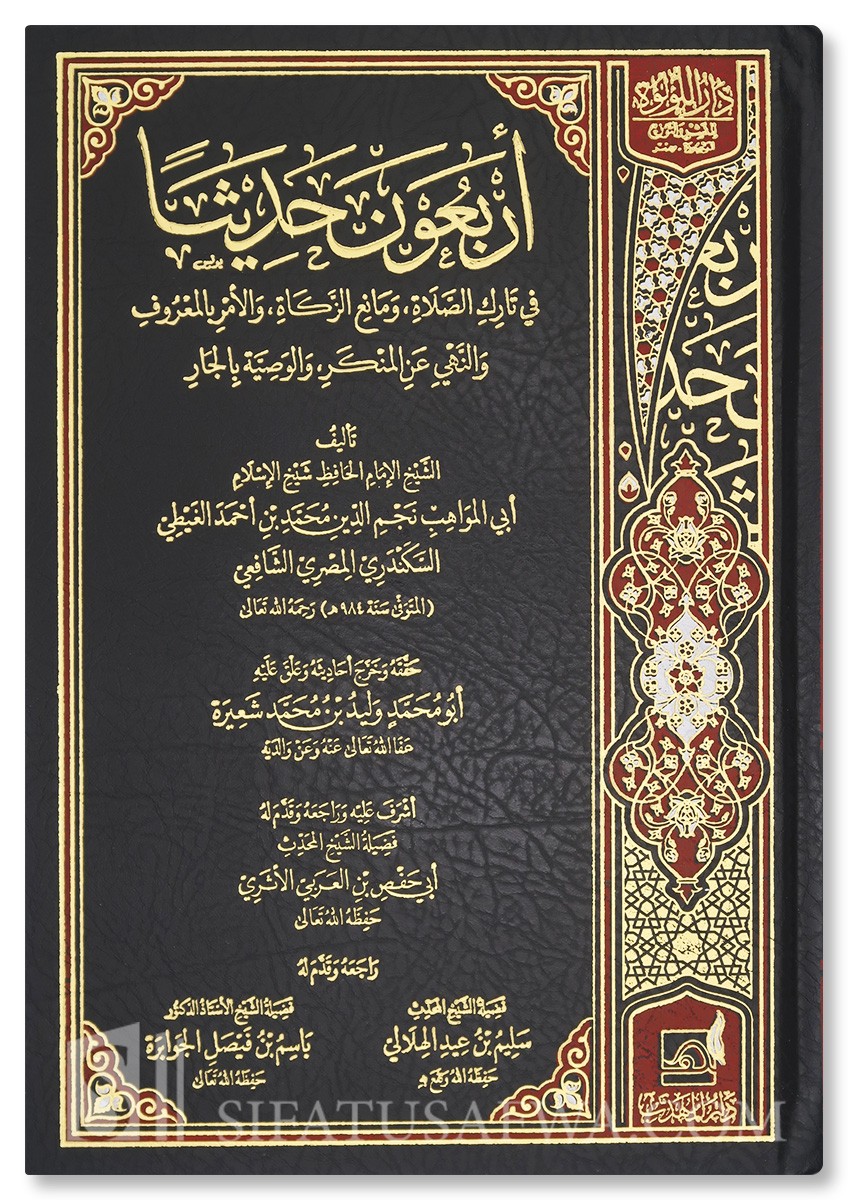 أَرْبَعُونَ حَدِيثًا
فِي تَارِكِ الصَّلَاةِ، وَمَانِعِ الزَّكَاةِ، وَالأَمْرِ بِالمَعْرُوفِ
وَالنَّهْيِ عَنِ المُنْكَرِ، وَالوَصِيَّةِ بِالجَارِ
تَأْلِيفُ
الشَّيْخِ الإِمَامِ الحَافِظِ شَيْخِ الإِسْلَامِ
أَبِي المَوَاهِبِ نَجْمِ الدِّينِ مُحَمَّدِ بْنِ أَحْمَدَ الغَيْطِيِّ
السَّكَنْدَرِيِّ المِصْرِيِّ الشَّافِعِيِّ
(المتوفى سَنَة ٩٨٤هـ) رَحِمَهُ اللهُ تَعَالَى
حَقَّقَهُ وَخَرَّجَ أَحَادِيثَهُ وَعَلَّقَ عَلَيْهِ
أَبُو مُحَمَّدٍ وَلِيدُ بْنُ مُحَمَّد شَعِيرَة
عَفَا اللهُ تَعَالَى عَنْهُ وَعَنْ وَالِدَيْهِ
أَشْرَفَ عَلَيْهِ وَرَاجَعَهُ وَقَدَّمَ لَهُ
فَضِيلَةُ الشَّيْخِ المُحَدِّثِ
أَبِي حَفْصٍ بْنِ العَرَبِيِّ الأَثَرِيِّ
حَفِظَهُ اللهُ تَعَالَى
رَاجَعَهُ وَقَدَّمَ لَهُ
فَضِيلَةُ الشَّيْخِ المُحَدِّثِ
سَلِيمُ بْنُ عِيدٍ الهِلَالِيُّ
حَفِظَهُ اللهُ
فَضِيلَةُ الشَّيْخِ الأُسْتَاذُ الدُّكْتُور
بَاسِمُ بْنُ فَيْصَلٍ الجَوَابِرَة
حَفِظَهُ اللهُ تَعَالَى
دَارُ اللُّؤْلُؤَة
SIFATUSAFWA.COM